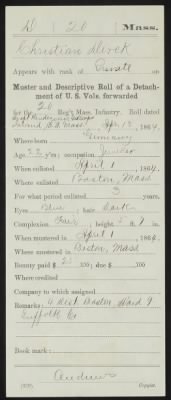 D 20 Mass.
Christian
Appears with rank of Private
Muster and Descriptive Roll of a Detach-
ment of U. S. Vols. forwarded
for the 20 Reg't Mass. Infantry. Roll dated
Island, B.H. Mass, Apr. 1864.
Where born Germany
Age 22 y'rs; occupation Jeweler
When enlisted April 1, 1864.
Where enlisted Boston, Mass
For what period enlisted 3 years.
Eyes Blue; hair Dark
Complexion Fair; height 5 ft. 7 in.
When mustered in April 1, 1864.
Where mustered in Boston, Mass
Bounty paid $ 100; due $ 100
Where credited
Company to which assigned
Remarks: 4 Dist. Boston Ward 9
Suffolk Co
Book mark:
Andrews
Copyist.